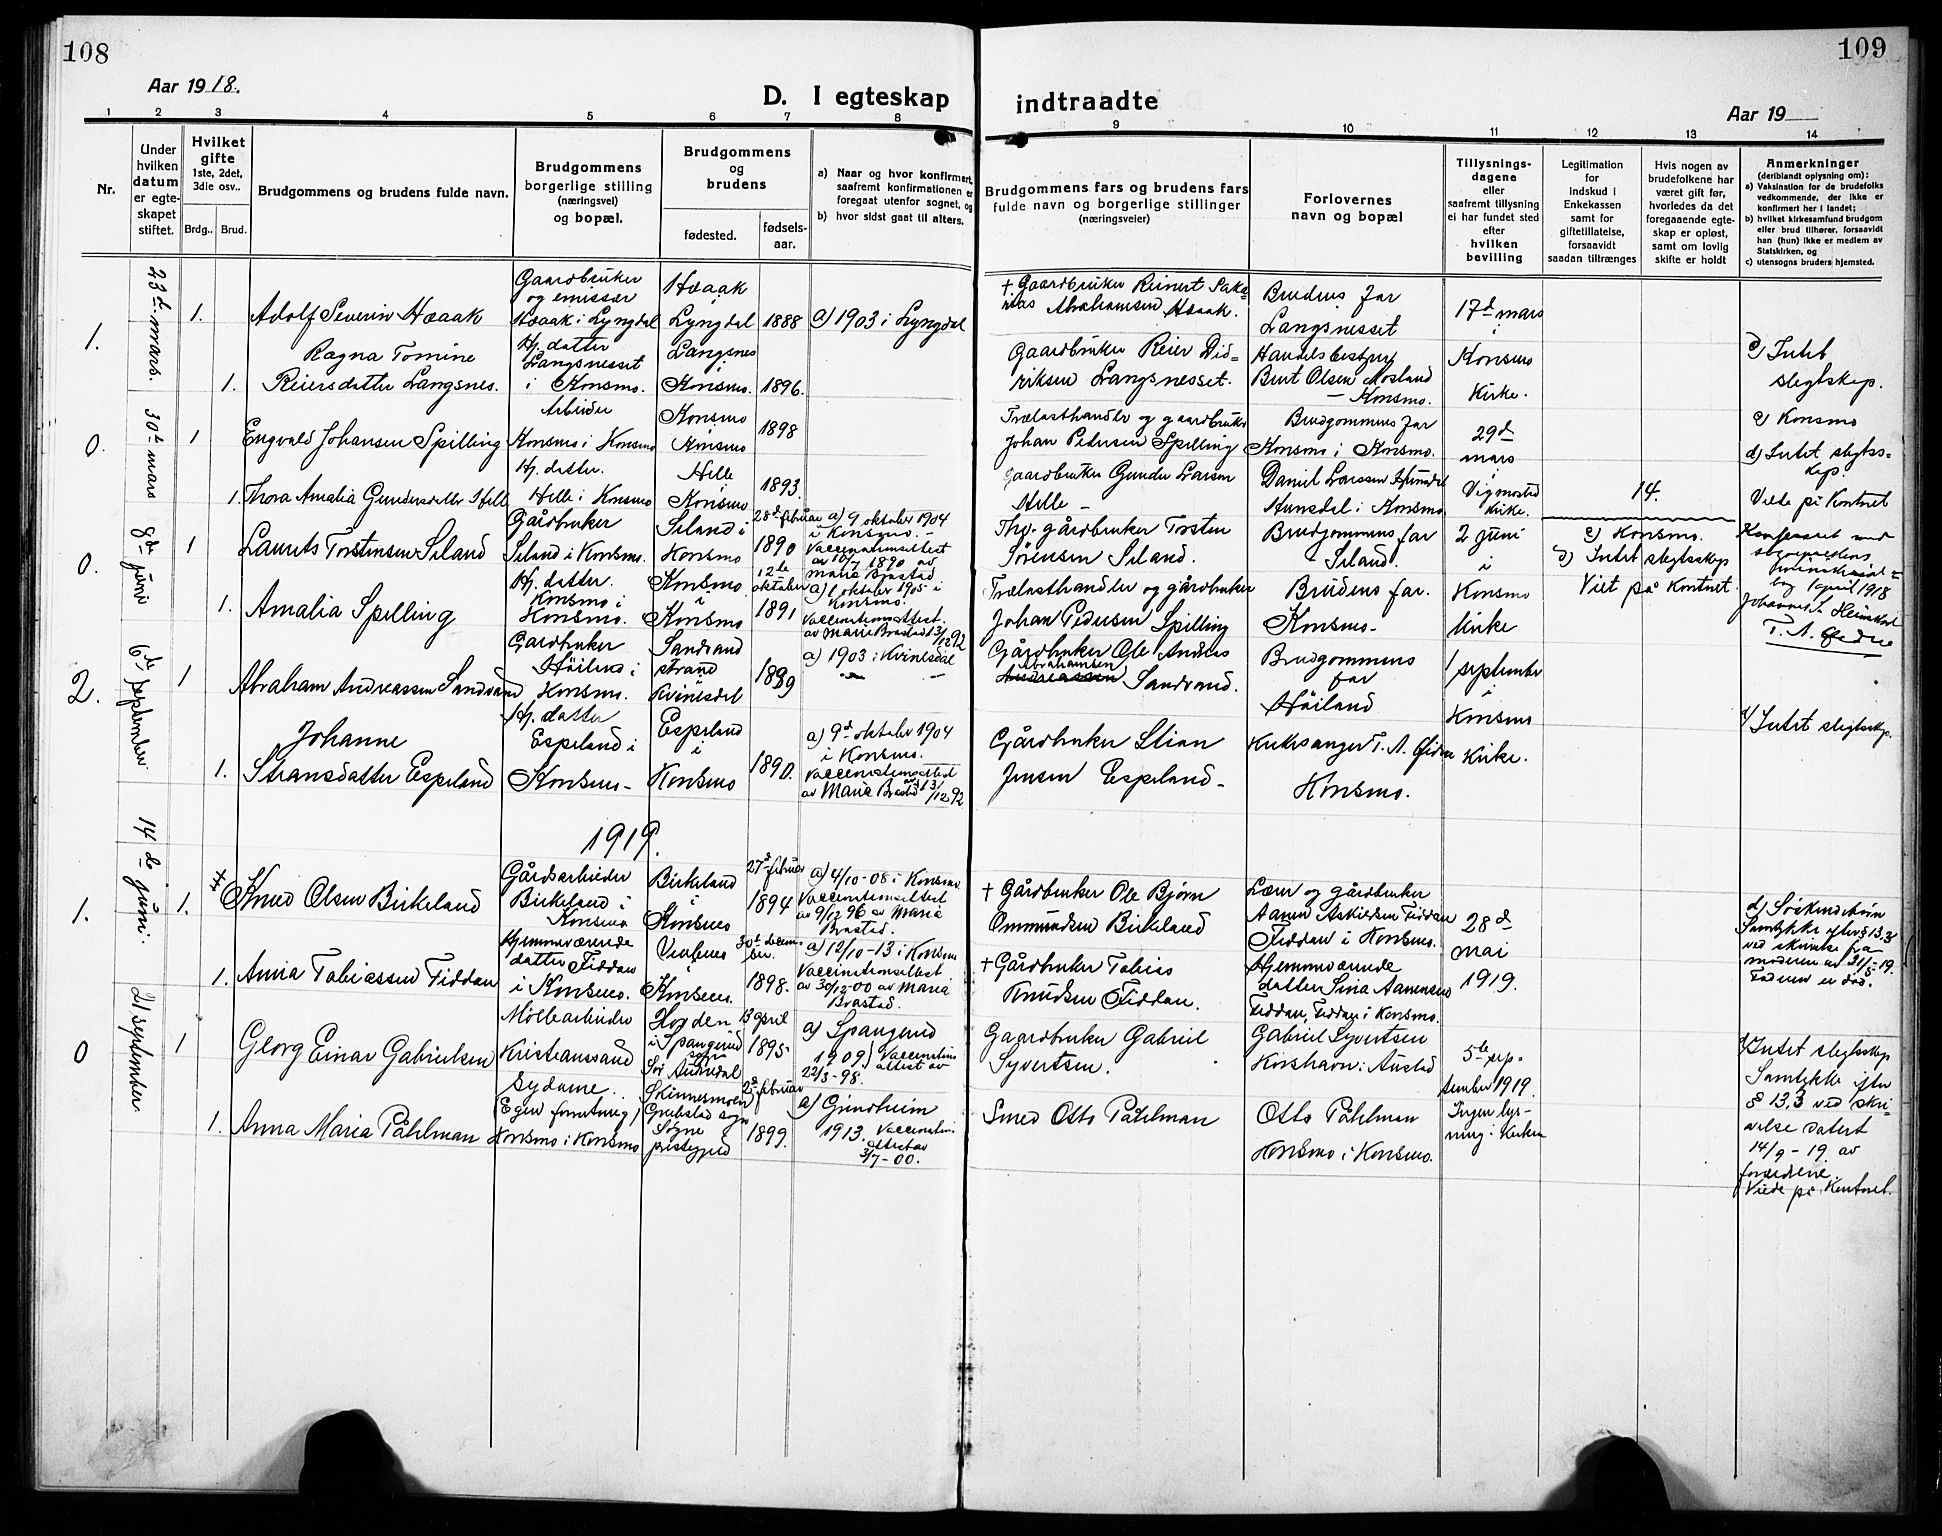 108
109
Aar 1918.
D. I egteskap
indtraadte
Aar 19
1 2 3 4 5 6 7 8 9 10 11 12 13 14
Nr.
Under
hvilken
datum
er egte-
skapet
stiftet.
Hvilket
gifte
1ste, 2det,
3die osv..
Brdg.. Brud.
Brudgommens og brudens fulde navn.
Brudgommens
borgerlige stilling
(næringsvei)
og bopæl.
Brudgommens
og
brudens
fødested.
fødsels-
aar.
a) Naar og hvor konfirmert,
saafremt konfirmationen er
foregaat utenfor sognet, og
b) hvor sidst gaat til alters.
Brudgommens fars og brudens fars
fulde navn og borgerlige stillinger
(næringsveier)
Forlovernes
navn og bopæl
Tillysnings-
dagene
eller
saafremt tillysning
ei har fundet sted
efter
hvilken
bevilling
Legitimation
for
indskud i
Enkekassen
samt for
giftetillatelse,
forsaavidt
saadan tiltrænges
Hvis nogen av
brudefolkene har
været gift før,
hvorledes da det
foregaaende egte-
skap er opløst,
samt om lovlig
skifte er holdt
Anmerkninger
(deriblandt oplysning om):
a) Vaksination for de brudefolks
vedkommende, der ikke er
konfirmert her i landet;
b) hvilket kirkesamfund brudgom
eller brud tilhører, forsaavidt
han (hun) ikke er medlem av
Statskirken, og
c) utensogns bruders hjemsted.
1.
23d mars.
1.
Adolf Severin Haaak
Gaardbruker
og emissær
Haaak i Lyngdal
Haaak
i
Lyngdal
1888
a) 1903 i Lyngdal
+ Gaardbruker Reinert Saka-
rias Abrahamsen Haaak.
Brudens far
Langsnesset
17d mars
i
Konsmo
Kirke.
1.
Ragna Tomine
Reiersdatter Langsnes.
Hj. datter
Langsnesset
i Konsmo.
Langsnes
i
Konsmo.
1896.
Gaardbruker Reier Did-
riksen Langsnesset.
Handelsbestyrer
Bent Olsen Mosland
- Konsmo.
c) Intet
slegtskap.
0.
30te mars
1
Engvald Johansen Spilling
Arbeider
Konsmo i Konsmo
Konsmo
Konsmo
1898
Trælasthandler og gaardbruker
Johan Pedersen Spilling
Brudgommens far
Konsmo i Konsmo.
29d
mars
i
Vigmostad
Kirke.
c) Konsmo
d) Intet slegts-
kap.
Viede på Kontoret
1.
Thora Amalia Gundersdatter Helle
Hj. datter.
Helle i Konsmo
Helle
i
Konsmo
1893.
Gaardbruker Gunder Larsen
Helle -
Daniel Larssen Hunsdal
Hunsdal i Konsmo.
14.
0.
8de juni
1
Laurits Torstensen Seland
Gårdbruker
Seland i Konsmo.
Seland i
Konsmo
28d februar
1890
a) 9 oktober 1904
i Konsmo. -
Vaccinationsattest
av 10/7 1890 av
Marie Brastad
Thv. gårdbruker Torsten
Sørensen Seland.
Brudgommens far
Seland.
2 juni
i
Konsmo
kirke
c) Konsmo.
d) Intet slegtsskap
Viet på Kontoret.
1.
Amalia Spilling
Hj. datter.
Konsmo i
Konsmo.
Konsmo
i
Konsmo
12te
oktober
1891
a) 1 oktober 1905 i
Konsmo.
Vaccinationsattest.
av Marie Brastad 13/12 92
Trælasthandler og gårdbruker
Johan Pedersen Spilling
Brudens far.
Konsmo-
Konfereret med
1 april 1918
T. A. Øidne
2.
6de september
1
Abraham Andreassen Sandvand
Gårdbruker
Høiland i
Konsmo.
Sandvand
strand
i
Kvinesdal
1889
a) 1903 i Kvinesdal
Gårdbruker Ole Andreas
Abrahamsen
Andreassen Sandvand.
Brudgommens
far
Høiland
1 september
i
Konsmo
Kirke.
1.
Johanne
Stiansdatter Espeland
Hj. datter
Espeland i
Konsmo-
Espeland
i
Konsmo
1890.
a) 9d oktober 1904
i Konsmo.
Vaccinationsattest
av Marie Brastad 13/12 92
Gårdbruker Stian
Jensen Espeland-
Kirkesanger T. A. Øidne
Konsmo.
Intet slegtsskap.
1919.
1.
14de juni.
1.
Knud Olsen Birkeland
Gårdsarbeider
Birkeland i
Konsmo
Birkeland
i
Konsmo
27d februar
1894
a) 4/10-08 i Konsmo.
Vaccinationsattest
av 9/12 96 av Maria
Brastad.
+ Gårdbruker Ole Bjørn
Ommundsen Birkeland
Lærer og gårdbruker
Aanen Askildsen Fiddan
Fiddan i Konsmo.
28d
mai
1919.
d) Søskendebørn
Samtykke efter § 13.3
ved skrivelse fra
moderen av 31/5-19.
Faderen er død.
1.
Anna Tobiassen Fiddan
Hjemmeværende
datter Fiddan
i Konsmo.
i
Konsmo.
30te decem-
ber.
1898.
a) 12/10-13 i Konsmo
Vaccinationsattest
av 30/12-00 av Maria
Brastad.
+ Gårdbruker Tobias
Knudsen Fiddan.
Hjemmeværende
datter Sina Aanensen
Fiddan, Fiddan i Konsmo.
0
21 september
1
Georg Einar Gabrielsen
Møllearbeider
Kristianssand
i Spangereid
sogn
Sør Audnedal
13 april
1895
a) Spangereid
1909) Vaccinations
attest av
22/3-98.
Gaardbruker Gabriel
Syvertsen.
Gabriel Syvertsen
Korshavn i Austad
5te sep-
tember 1919.
Ingen lys-
ning i Kirken
Intet slegtsskap
Samtykke efter
§ 13,3 ved skri-
velse datert
14/9-19. av
forældrene.
Viede på Kontoret.
1.
Anna Maria Påhlman
Sydame.
(Egen forretning)
Konsmo i Konsmo
Skinnermoen
Greibstad sogn
Søgne
prestegjeld
februar
1899.
a) Grindheim
1913. Vaccinations
attest av
3/7-00.
Smed Otto Påhlman
Otto Påhlman
Konsmo i Konsmo.